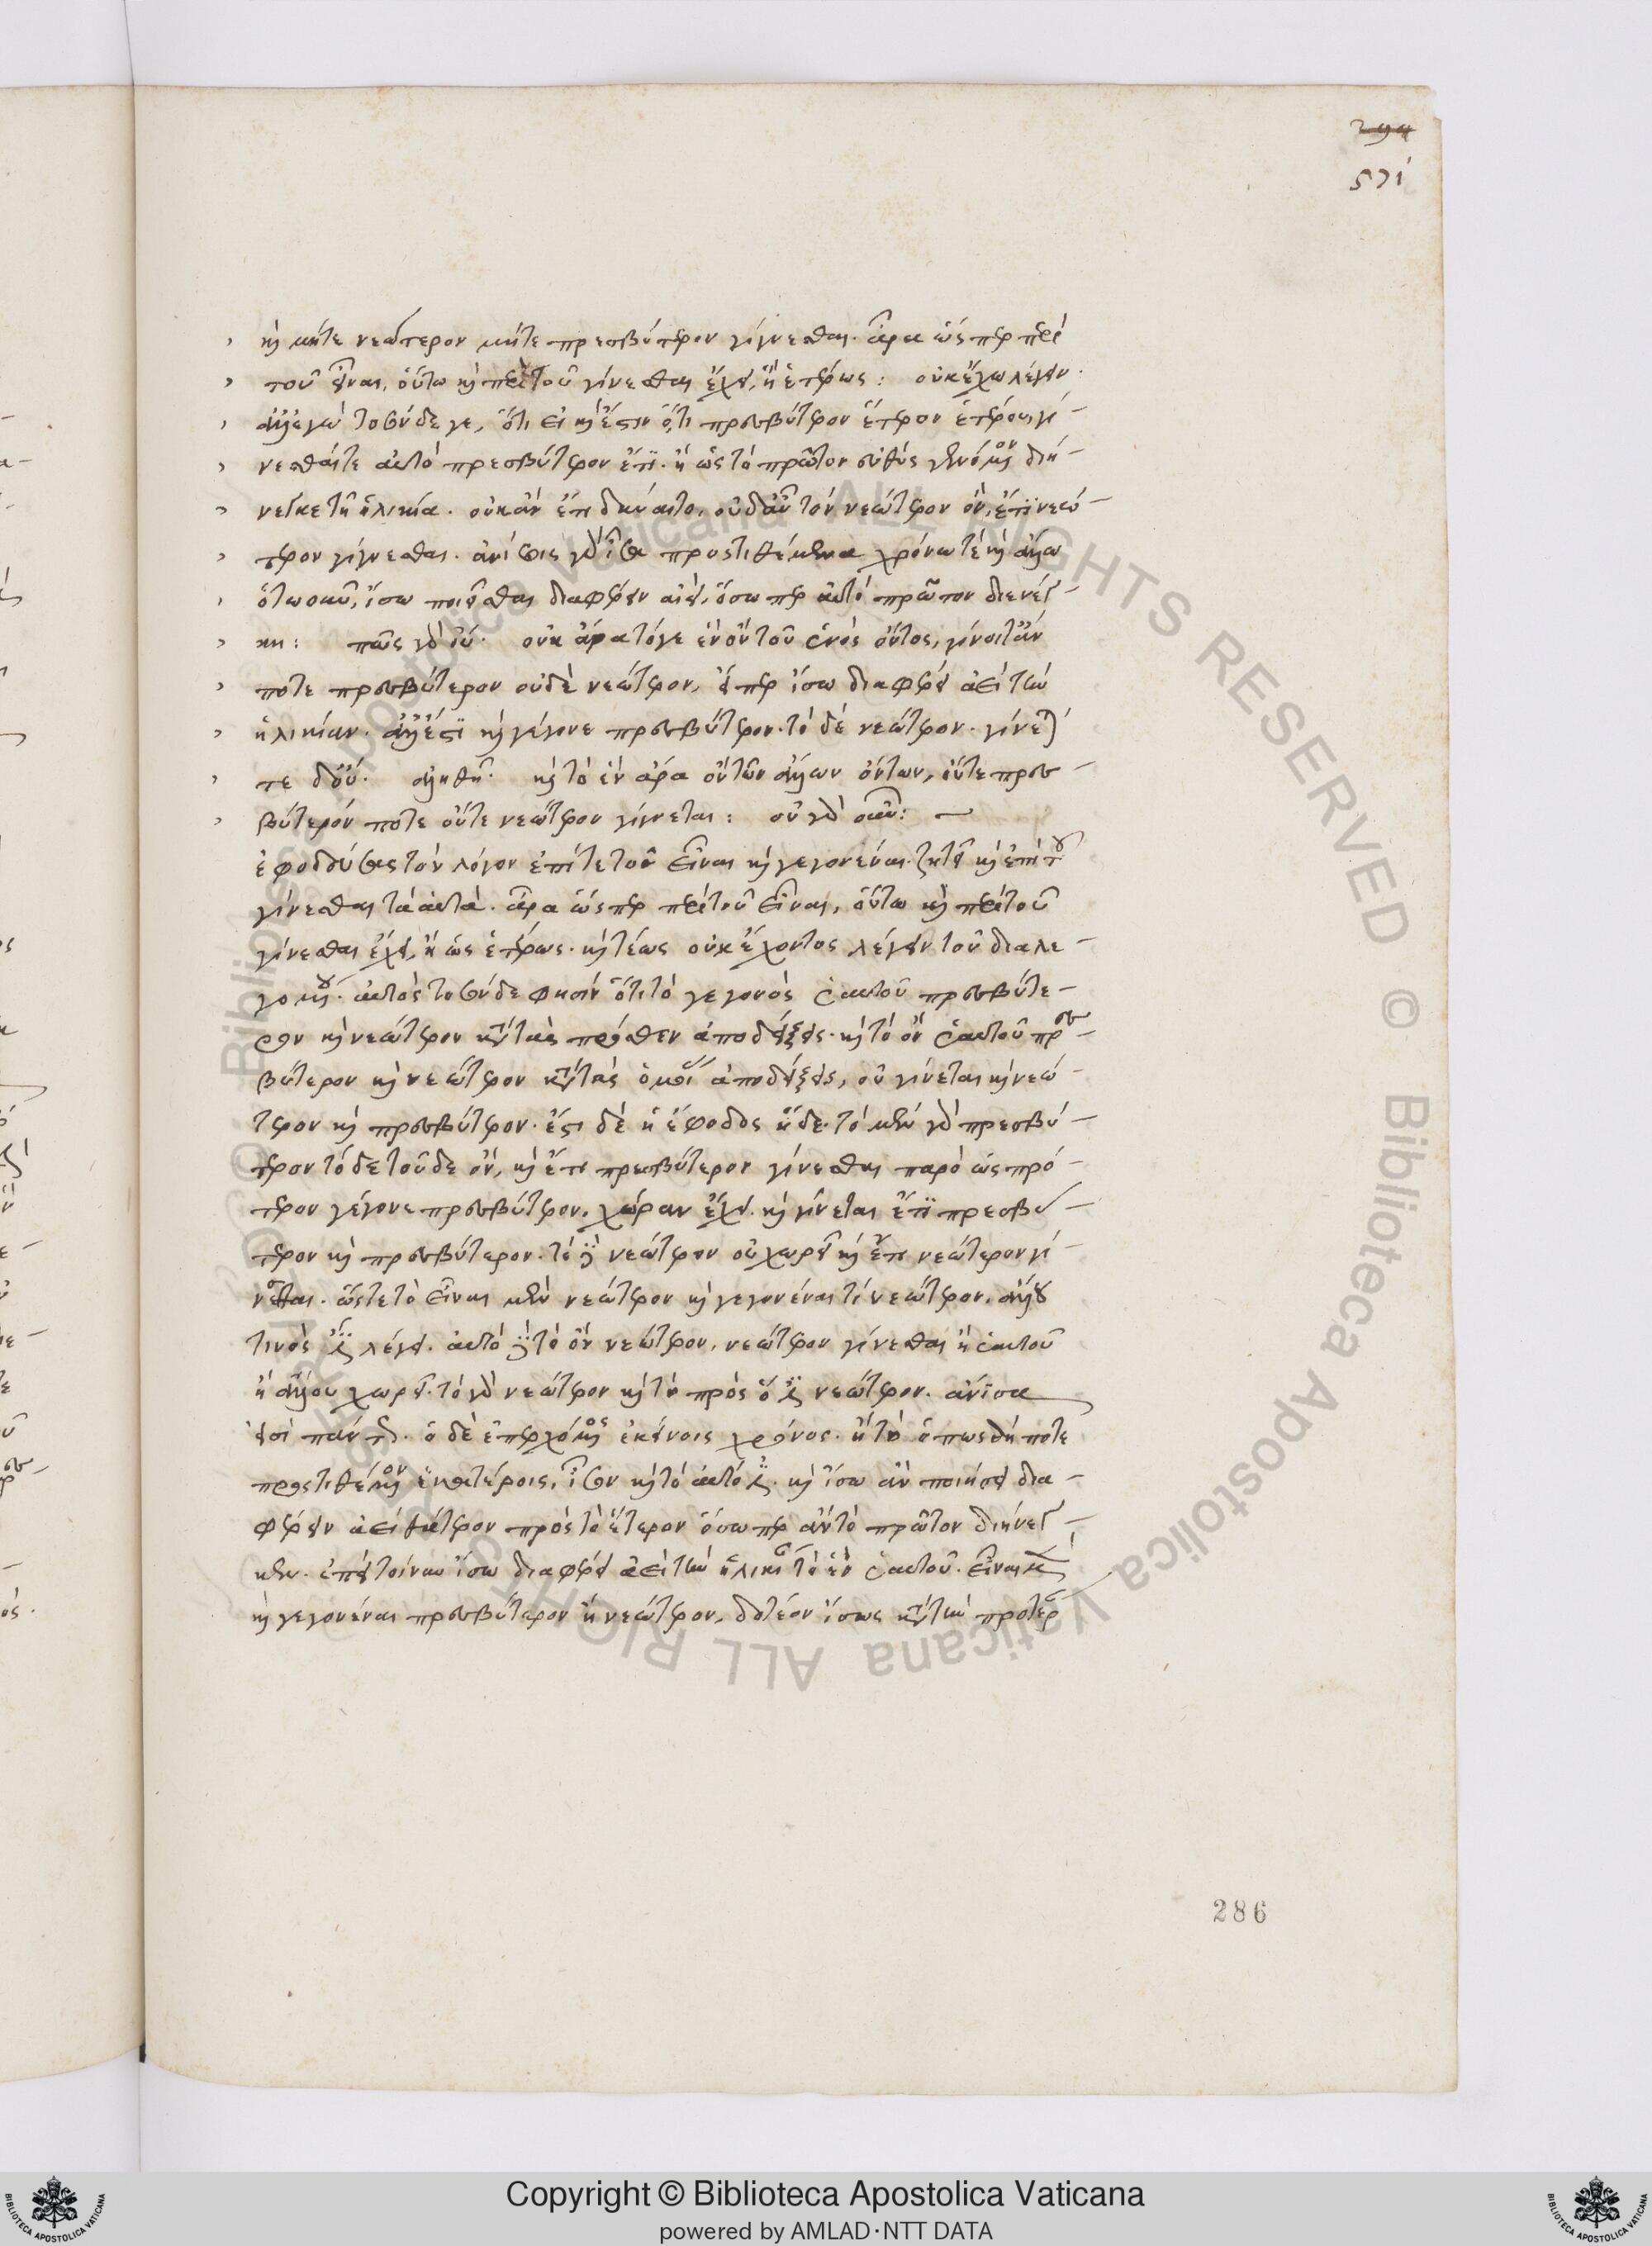 294
571
καὶ μήτε νεώτερον μήτε πρεσβύτερον γίγνεσθαι. ἆρα ὥσπερ περὶ
τοῦ εἶναι, οὕτω καὶ περὶ τοῦ γίνεσθαι ἔχει, ἢ ἑτέρως: οὐκ ἔχω λέγειν.
ἀλλ' ἐγὼ τοσόνδε γε, ὅτι εἰ καὶ ἔστιν ὅτι πρεσβύτερον ἕτερον ἑτέρου, γί-
νεσθαί τε αὐτὸ πρεσβύτερον ἔτι. ἢ ὡς τὸ πρῶτον εὐθὺς γενόμενον διή-
νεγκε τῇ ἡλικίᾳ. οὐκ ἂν ἔτι δύναιτο, οὐδ' αὖ τὸν νεώτερον ὄν, ἔτι νεώ-
τερον γίγνεσθαι. ἀνίσοις γὰρ ἴσα προστιθέμενα χρόνω τέ καὶ ἄλλω
ὁτωοῦν, ἴσω ποιεῖσθαι διαφέρειν αἰεί, ὅσω περ αὐτὸ πρῶτον διενέγ-
κη: πῶς γὰρ οὔ. οὐκ ἄρα τόγε ἓν ὂν τοῦ ἑνὸς ὄντος, γίνοιτ' ἄν
ποτε πρεσβύτερον οὐδὲ νεώτερον, εἴπερ ἴσω διαφέρει ἀεὶ τὴν
ἡλικίαν. ἀλλ' ἔστι καὶ γέγονε πρεσβύτερον. τὸ δὲ νεώτερον. γίνεται
τε δ' οὔ. ἀληθῆ. καὶ τὸ ἓν ἄρα ὂν τῶν ἄλλων ὄντων, οὔτε πρεσ-
βύτερόν ποτε οὔτε νεώτερον γίγνεται: οὐ γὰρ οὖν:
ἐφοδεύσας τὸν λόγον ἐπί τε τοῦ εἶναι καὶ γεγονέναι. ζητεῖ καὶ ἐπὶ τοῦ
γίνεσθαι τὰ αὐτά. ἆρα ὥσπερ περὶ τοῦ εἶναι, οὕτω καὶ περὶ τοῦ
γίνεσθαι ἔχει, ἢ ὡς ἑτέρως. καὶ τέως οὐκ ἔχοντος λέγειν τοῦ διαλε-
γομένου. αὐτὸς τοσόνδε φησὶν ὅτι τὸ γεγονὸς ἑαυτοῦ πρεσβύτε-
ρον καὶ νεώτερον κατὰ τὰς πρόσθεν ἀποδείξεις. καὶ τὸ ὂν ἑαυτοῦ πρεσ-
βύτερον καὶ νεώτερον κατὰ τὰς ὁμοίας ἀποδείξεις, οὐ γίνεται καὶ νεώ-
τερον καὶ πρεσβύτερον. ἔστι δὲ ἡ ἔφοδος ἥδε. τὸ μὲν γὰρ πρεσβύ-
τερον τόδε τοῦδε ὄν, καὶ ἔτι πρεσβύτερον γίνεσθαι παρὸ ὡς πρό-
τερον γέγονε πρεσβύτερον, χώραν ἔχει. καὶ γίνεται ἔτι πρεσβύ-
τερον καὶ πρεσβύτερον. τὸ δὲ νεώτερον οὐ χωρεῖ καὶ ἔτι νεώτερον γί-
νεσθαι. ὥστε τὸ εἶναι μὲν νεώτερον καὶ γεγονέναι τὶ νεώτερον, ἄλλου
τινὸς ἐστι λέγει. αὐτὸ δὲ τὸ ὂν νεώτερον, νεώτερον γίνεσθαι ἢ ἑαυτοῦ
ἢ ἄλλου χωρεῖ. τὸ γὰρ νεώτερον καὶ τὸ πρὸς ὅ ἐστι νεώτερον. ἄνισα
εἰσὶ πάντως. ὁ δὲ ἐπερχόμενος ἐκείνοις χρόνος. ἢ τὸ ὁπωσδήποτε
προστιθέμενον ἑκατέροις, ἴσον καὶ τὸ αὐτό ἐστι. καὶ ἴσω ἂν ποιήσει δια-
φέρειν ἀεὶ θάτερον πρὸς τὸ ἕτερον ὅσω περ ἂν τὸ πρῶτον διήνεγ-
κεν. ἐπεὶ τοίνυν ἴσω διαφέρει ἀεὶ τὴν ἡλικίαν τὸ ἓν ἑαυτοῦ. εἶναι μὲν
καὶ γεγονέναι πρεσβύτερον ἢ νεώτερον, δοτέον ἴσως κατὰ τὴν προτέρ
286